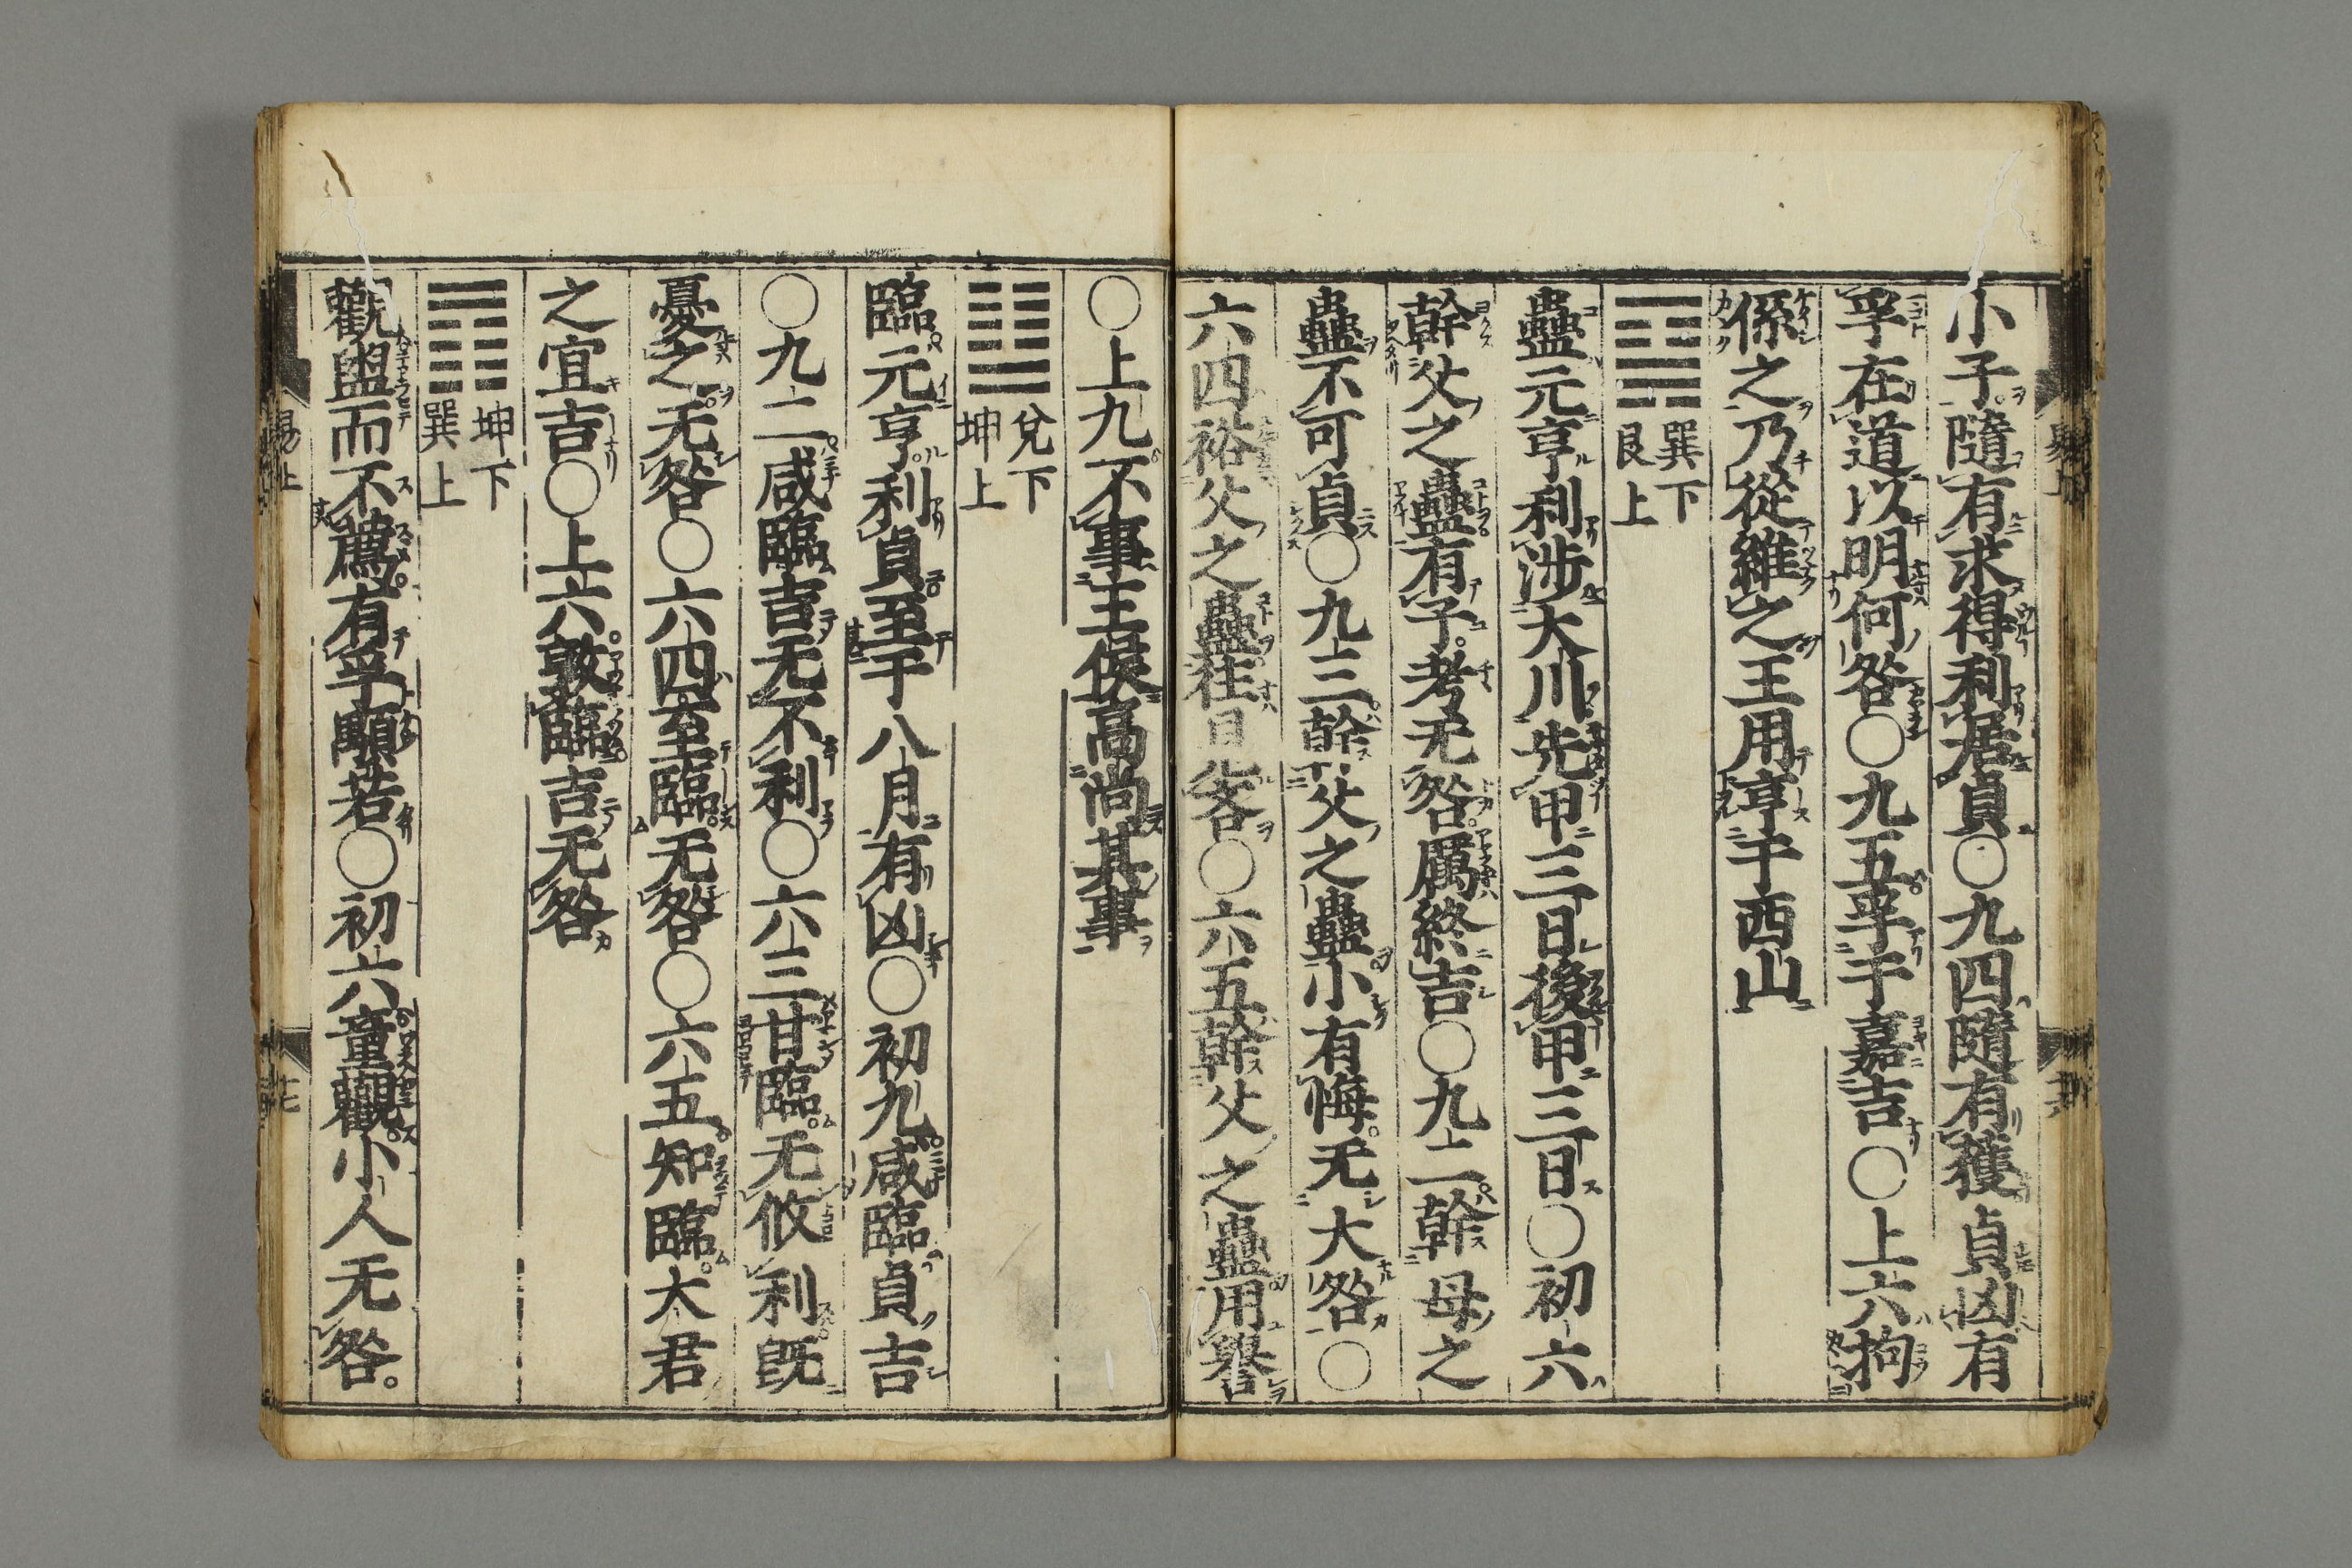 小子隨有求得利居貞〇九四隨有獲貞凶有
孚在道以明何咎〇九五孚于嘉吉〇上六拘
係之乃從維之王用亨于西山
巽下
艮上
蠱元亨利涉大川先甲三日後甲三日〇初六
幹父之蠱有子考无咎厲終吉〇九二幹母之
蠱不可貞〇九三幹父之蠱小有悔无大咎〇
六四裕父之蠱往見吝〇六五幹父之蠱用譽
〇上九不事王侯高尚其事
兌下
坤上
臨元亨利貞至于八月有凶〇初九咸臨貞吉
〇九二咸臨吉无不利〇六三甘臨无攸利既
憂之无咎〇六四至臨无咎〇六五知臨大君
之宜吉〇上六敦臨吉无咎
坤下
巽上
觀盥而不薦有孚顒若〇初六童觀小人无咎